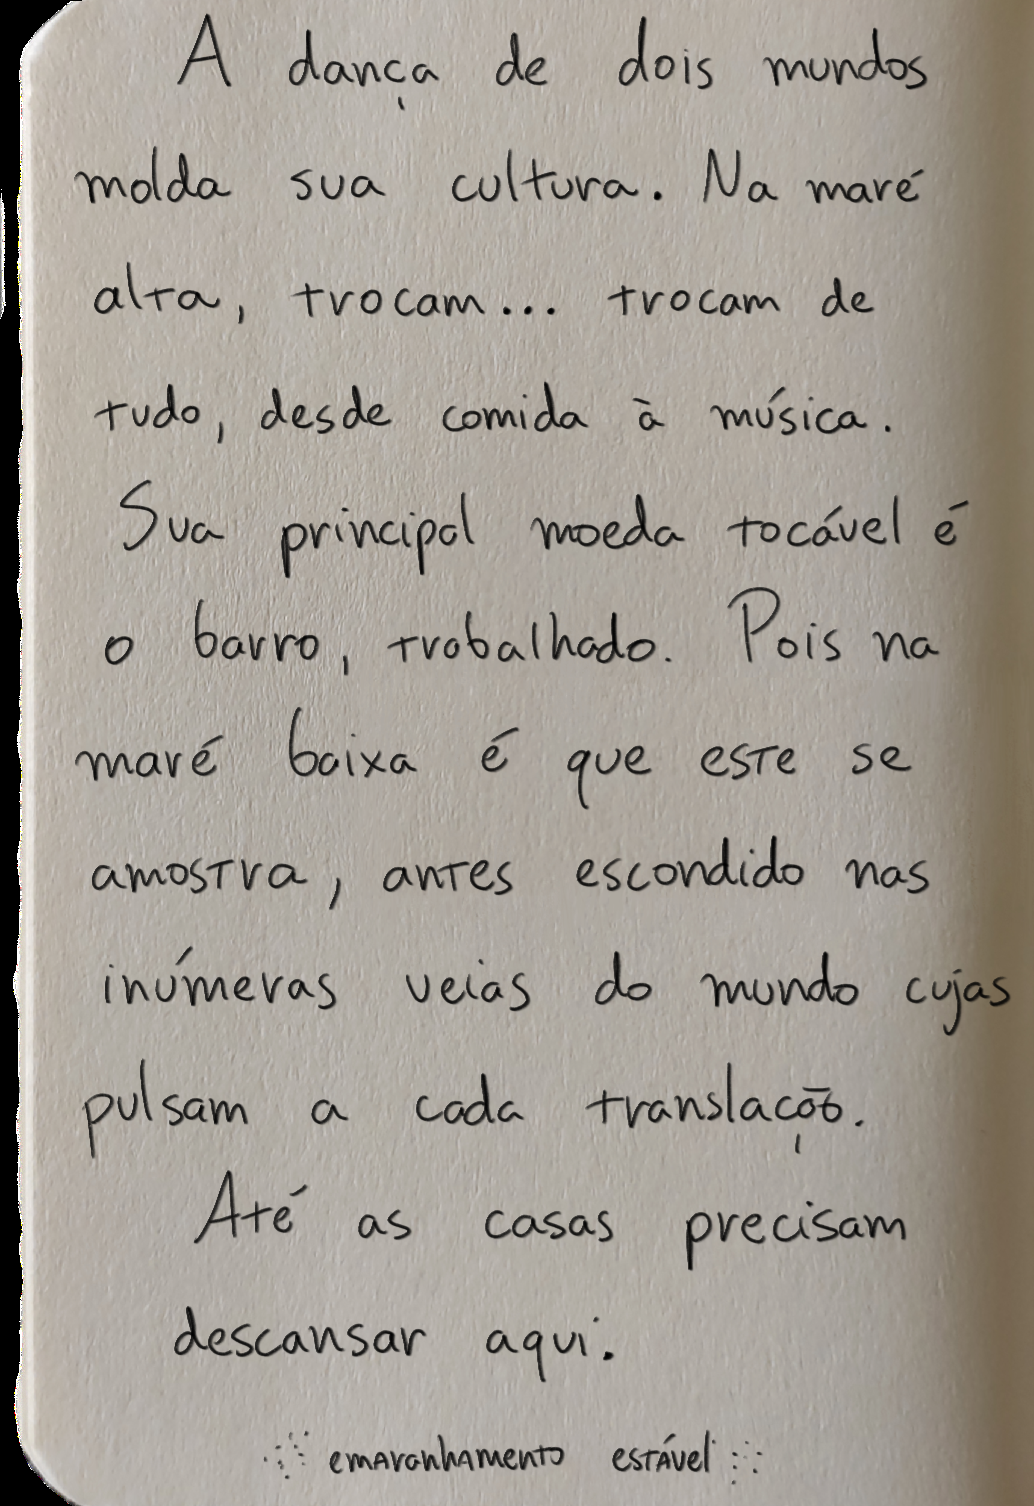 A dança de dois mundos
molda sua cultura. Na maré
alta, trocam... trocam de
tudo, desde comida à música.
Sua principal moeda tocável é
o barro, trabalhado. Pois na
maré baixa é que este se
amostra, antes escondido nas
inúmeras veias do mundo cujas
pulsam a cada translação.
Até as casas precisam
descansar aqui.
emaranhamento estável